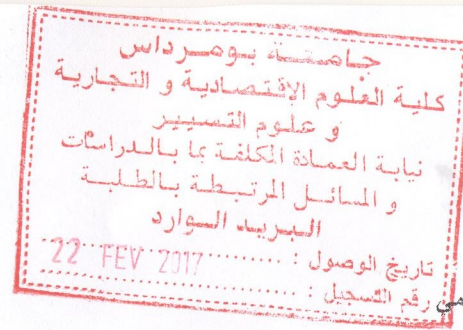 جامعة بومرداس
كلية العلوم الإقتصادية و التجارية
و علوم التسيير
نيابة العمادة المكلفة بما بالدراسات
و المسائل المرتبطة بالطلبة
البريد الوارد
تاريخ الوصول : 22 FEV 2017
رقم التسجيل :
مي